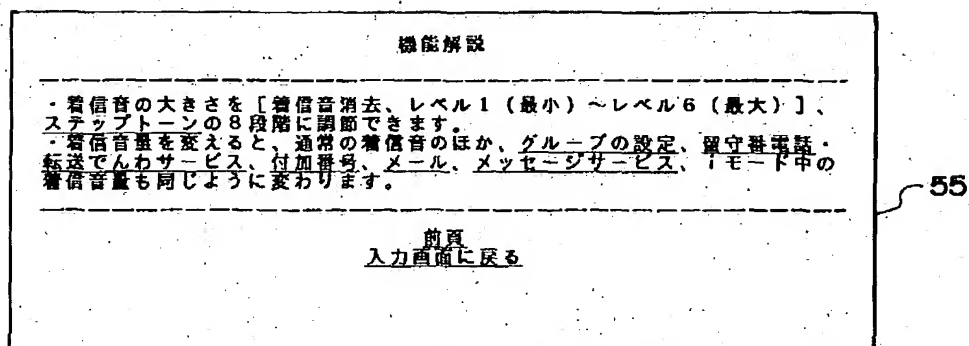 機能解説
・着信音の大きさを[着信音消去、レベル1(最小)~レベル6(最大)]、
ステップトーンの8段階に調節できます。
・着信音量を変えると、通常の着信音のほか、グループの設定、留守番電話・
転送でんわサービス、付加番号、メール、メッセージサービス、iモード中の
着信音量も同じように変わります。
55
前頁
入力画面に戻る